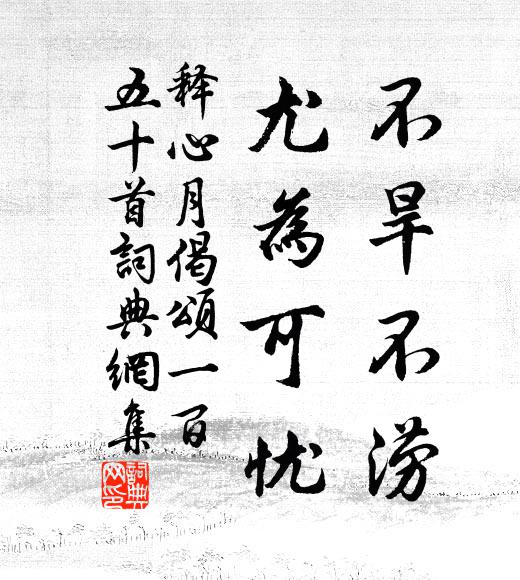 不旱不涝
尤為可忧
释心月偈頌一百
五十首詞典網集
詞典
网印